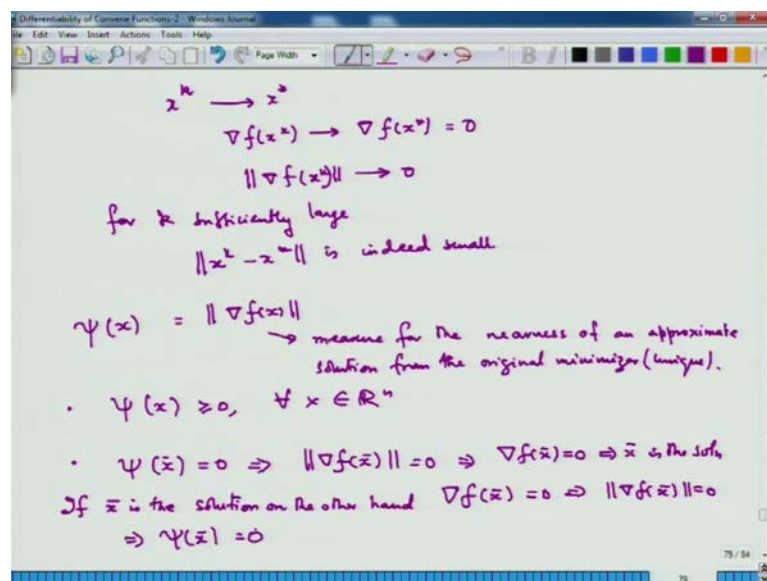 Differentiability of Convene Functions-2 - Windows Journal
File Edit View Insert Actions Tools Help
Page Width B I
x^k → x^*
∇f(x^k) → ∇f(x^*) = 0
||∇f(x^k)|| → 0
for k sufficiently large
||x^k - x^*|| is indeed small.
ψ(x) = ||∇f(x)||
→ measure for the nearness of an approximate
solution from the original minimizer (unique).
• ψ(x) ≥ 0, ∀ x ∈ ℝ^n
• ψ(x̄) = 0 ⇒ ||∇f(x̄)|| = 0 ⇒ ∇f(x̄) = 0 ⇒ x̄ is the soln,
If x̄ is the solution on the other hand ∇f(x̄) = 0 ⇒ ||∇f(x̄)|| = 0
⇒ ψ(x̄) = 0
79 / 84
79